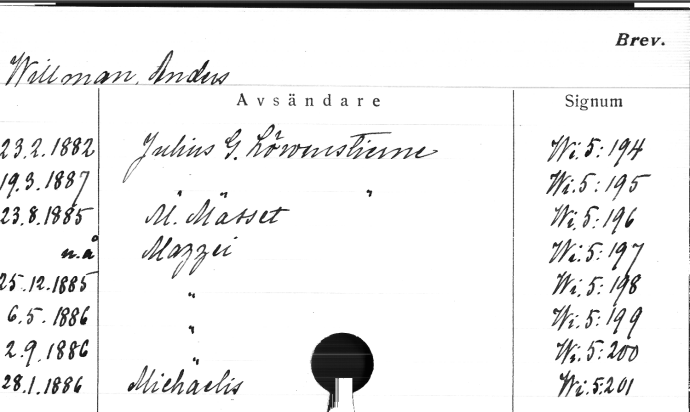 Brev.
Willman, Anders
Avsändare Signum
23.2.1882 Julius G. Löwenstierne Wi.5:194
19.3.1887 " " " Wi.5:195
23.8.1885 M. Masset Wi.5:196
n.å Mazzei Wi.5:197
25.12.1885 " Wi.5:198
6.5.1886 " Wi.5:199
2.9.1886 " Wi.5:200
28.1.1886 Michaelis Wi.5:201